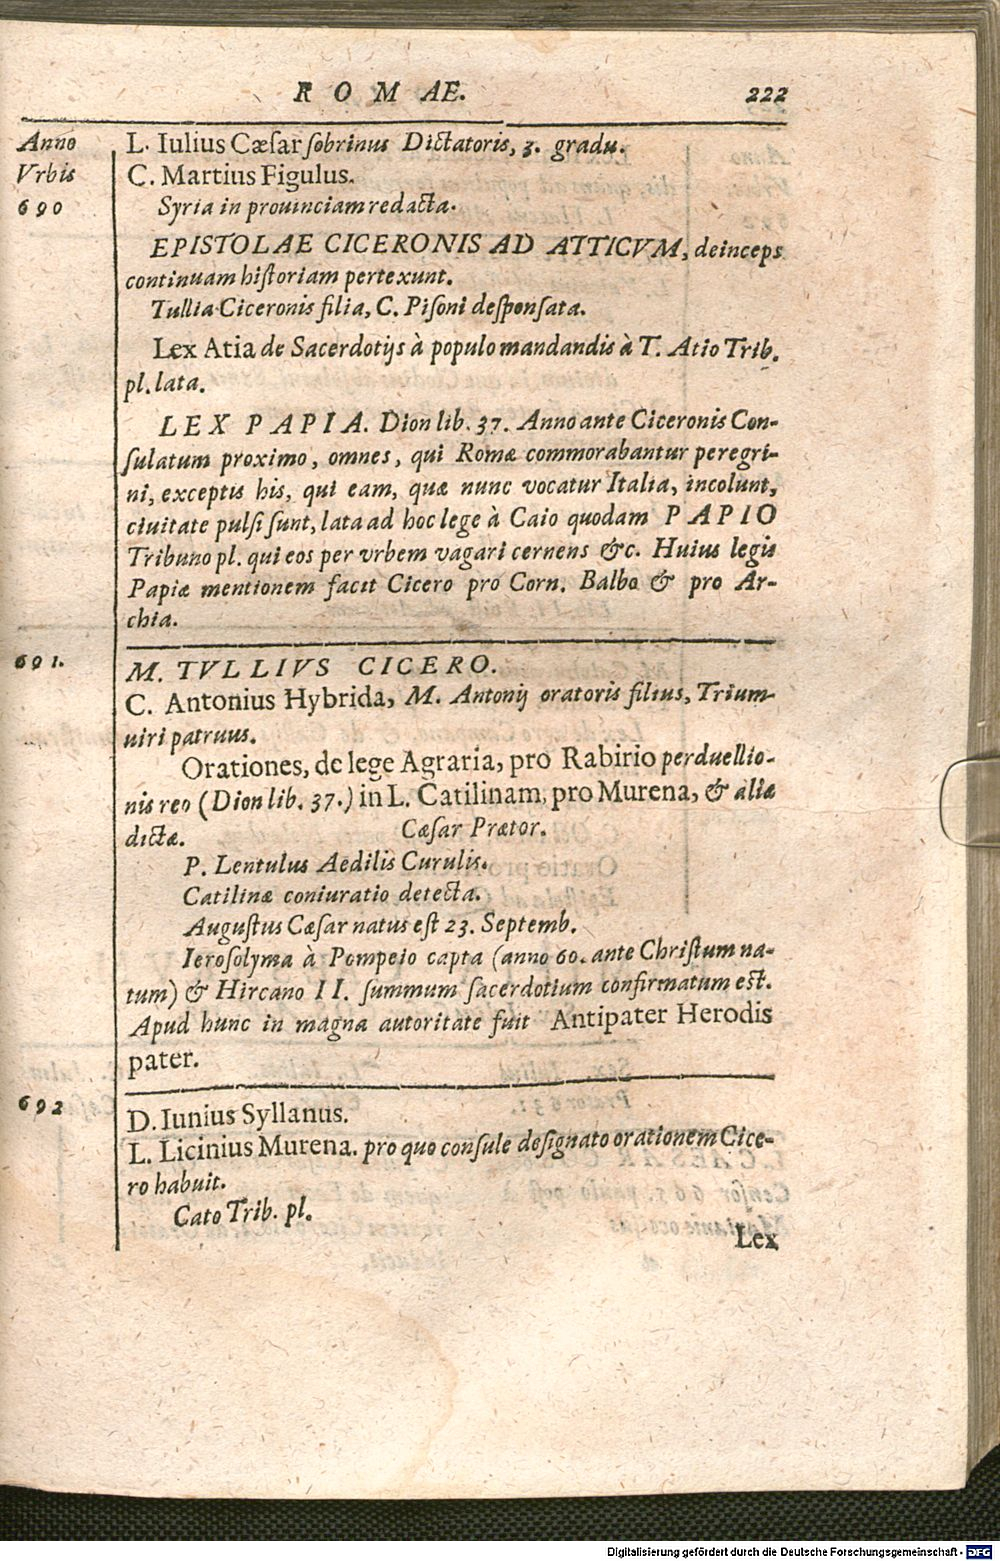 R O M AE. 222
Anno L. Iulius Cæsar ſobrinus Dictatoris, 3. gradu.
Vrbis C. Martius Figulus.
690 Syria in prouinciam redacta.
EPISTOLAE CICERONIS AD ATTICVM, deinceps
continuam hiſtoriam pertexunt.
Tullia Ciceronis filia, C. Piſoni deſponſata.
Lex Atia de Sacerdotijs à populo mandandis à T. Atio Trib.
pl. lata.
LEX PAPIA. Dion lib. 37. Anno ante Ciceronis Con-
ſulatum proximo, omnes, qui Romæ commorabantur peregri-
ni, exceptis his, qui eam, quæ nunc vocatur Italia, incolunt,
ciuitate pulſi ſunt, lata ad hoc lege à Caio quodam PAPIO
Tribuno pl. qui eos per vrbem vagari cernens &c. Huius legis
Papiæ mentionem facit Cicero pro Corn. Balbo & pro Ar-
chia.
691. M. TVLLIVS CICERO.
C. Antonius Hybrida, M. Antonij oratoris filius, Trium-
uiri patruus.
Orationes, de lege Agraria, pro Rabirio perduellio-
nis reo (Dion lib. 37.) in L. Catilinam, pro Murena, & aliæ
dictæ. Cæſar Prætor.
P. Lentulus Aedilis Curulis.
Catilinæ coniuratio detecta.
Auguſtus Cæſar natus eſt 23. Septemb.
Ieroſolyma à Pompeio capta (anno 60. ante Chriſtum na-
tum) & Hircano II. ſummum ſacerdotium confirmatum eſt.
Apud hunc in magna autoritate fuit Antipater Herodis
pater.
692 D. Iunius Syllanus.
L. Licinius Murena. pro quo conſule deſignato orationem Cice-
ro habuit.
Cato Trib. pl.
Lex
Digitalisierung gefördert durch die Deutsche Forschungsgemeinschaft - DFG